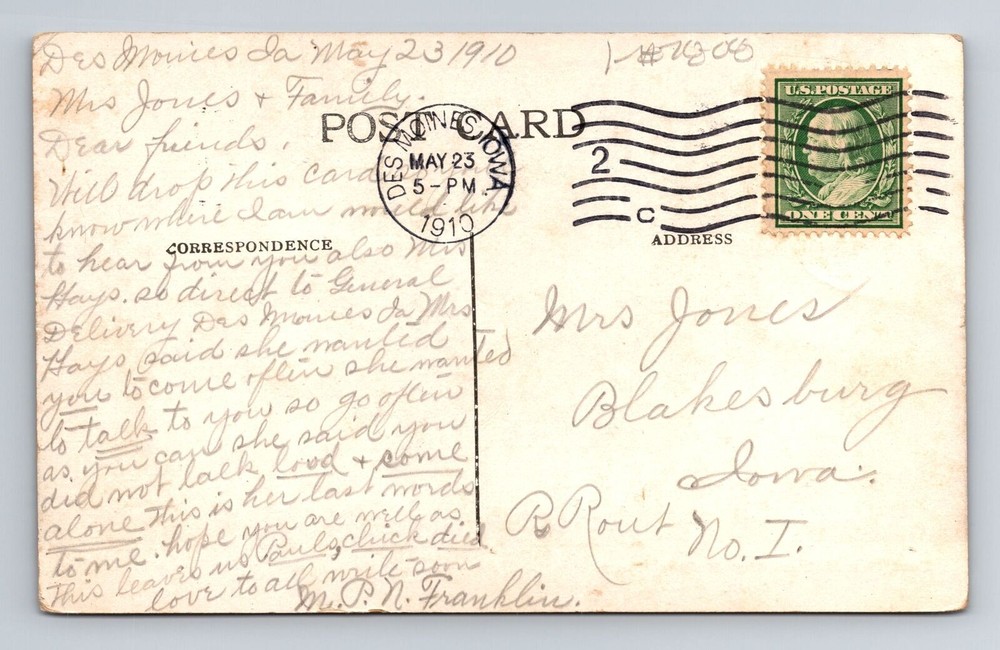 Des Moines Ia May 23 1910
Mrs Jones + Family.
Dear friends,
Will drop this card
know where I am would like
to hear from you also Mrs
Hays. so direct to General
Delivery Des Moines Ia Mrs
Hays said she wanted
you to come often she wanted
to talk to you so go often
as you can she said you
did not talk loud + come
alone This is her last words
to me. hope you are well as
this leaves us Pauls chick died
love to all write soon
M. P. N. Franklin.
POST CARD
CORRESPONDENCE
ADDRESS
DES MOINES, IOWA
MAY 23
5-PM
1910
2
C
U.S. POSTAGE
ONE CENT
Mrs Jones
Blakesburg
Iowa.
R Rout No. I.